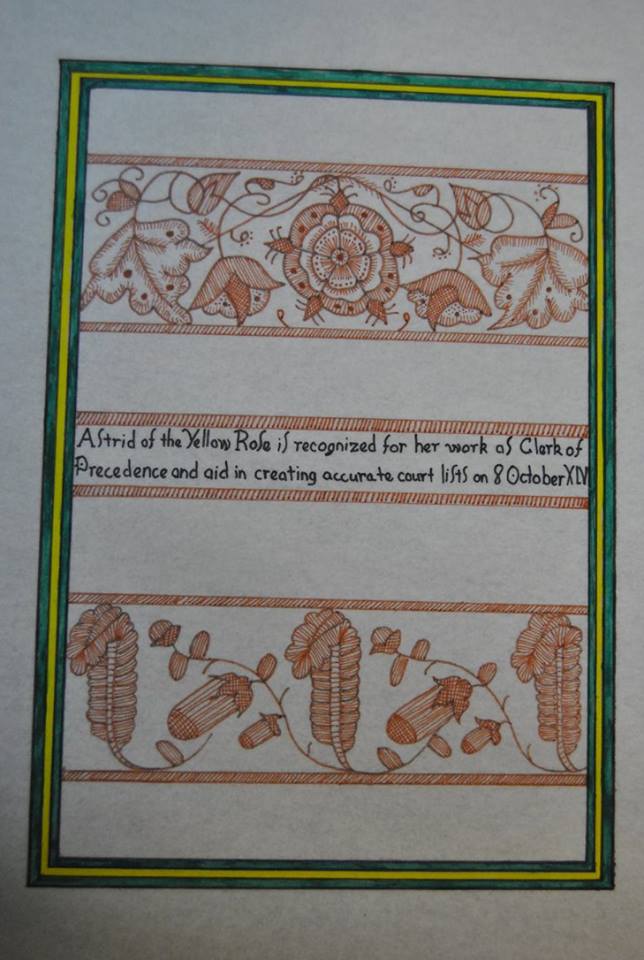 Astrid of the Yellow Rose is recognized for her work as Clerk of
Precedence and aid in creating accurate court lists on 8 October